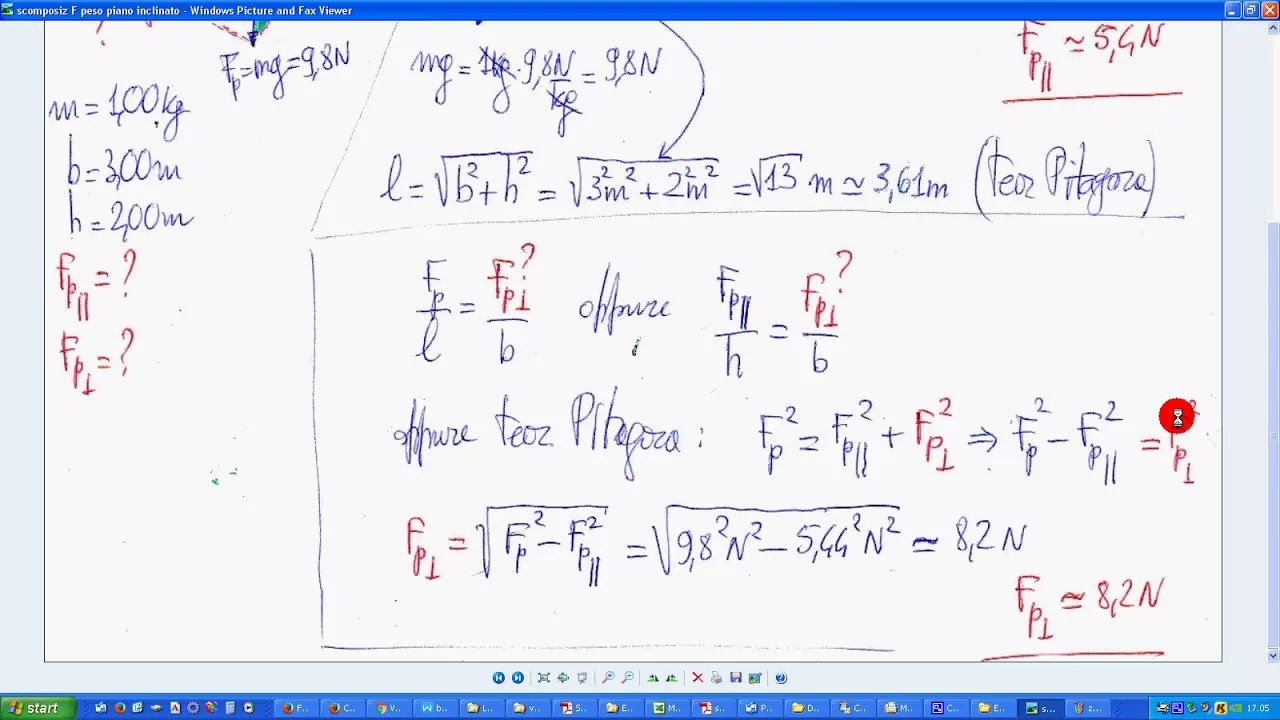 scomposiz F peso piano inclinato - Windows Picture and Fax Viewer
?
Fp=mg=9,8N
mg = 1kg · 9,8 N/kg = 9,8N
Fp∥ ≃ 5,4N
m = 1,00kg
b = 3,00m
h = 2,00m
Fp∥ = ?
Fp⊥ = ?
l = √(b²+h²) = √(3²m²+2²m²) = √13 m ≃ 3,61m (teor Pitagora)
Fp/l = Fp⊥?/b oppure Fp∥/h = Fp⊥?/b
oppure teor Pitagora: Fp² = Fp∥² + Fp⊥² ⇒ Fp² − Fp∥² = Fp⊥²
Fp⊥ = √(Fp² − Fp∥²) = √(9,8²N² − 5,44²N²) ≃ 8,2N
Fp⊥ ≃ 8,2N
start F... C... V... b... L... S... E... M... s... P... D... C... M... C... E... s... z... 17.05